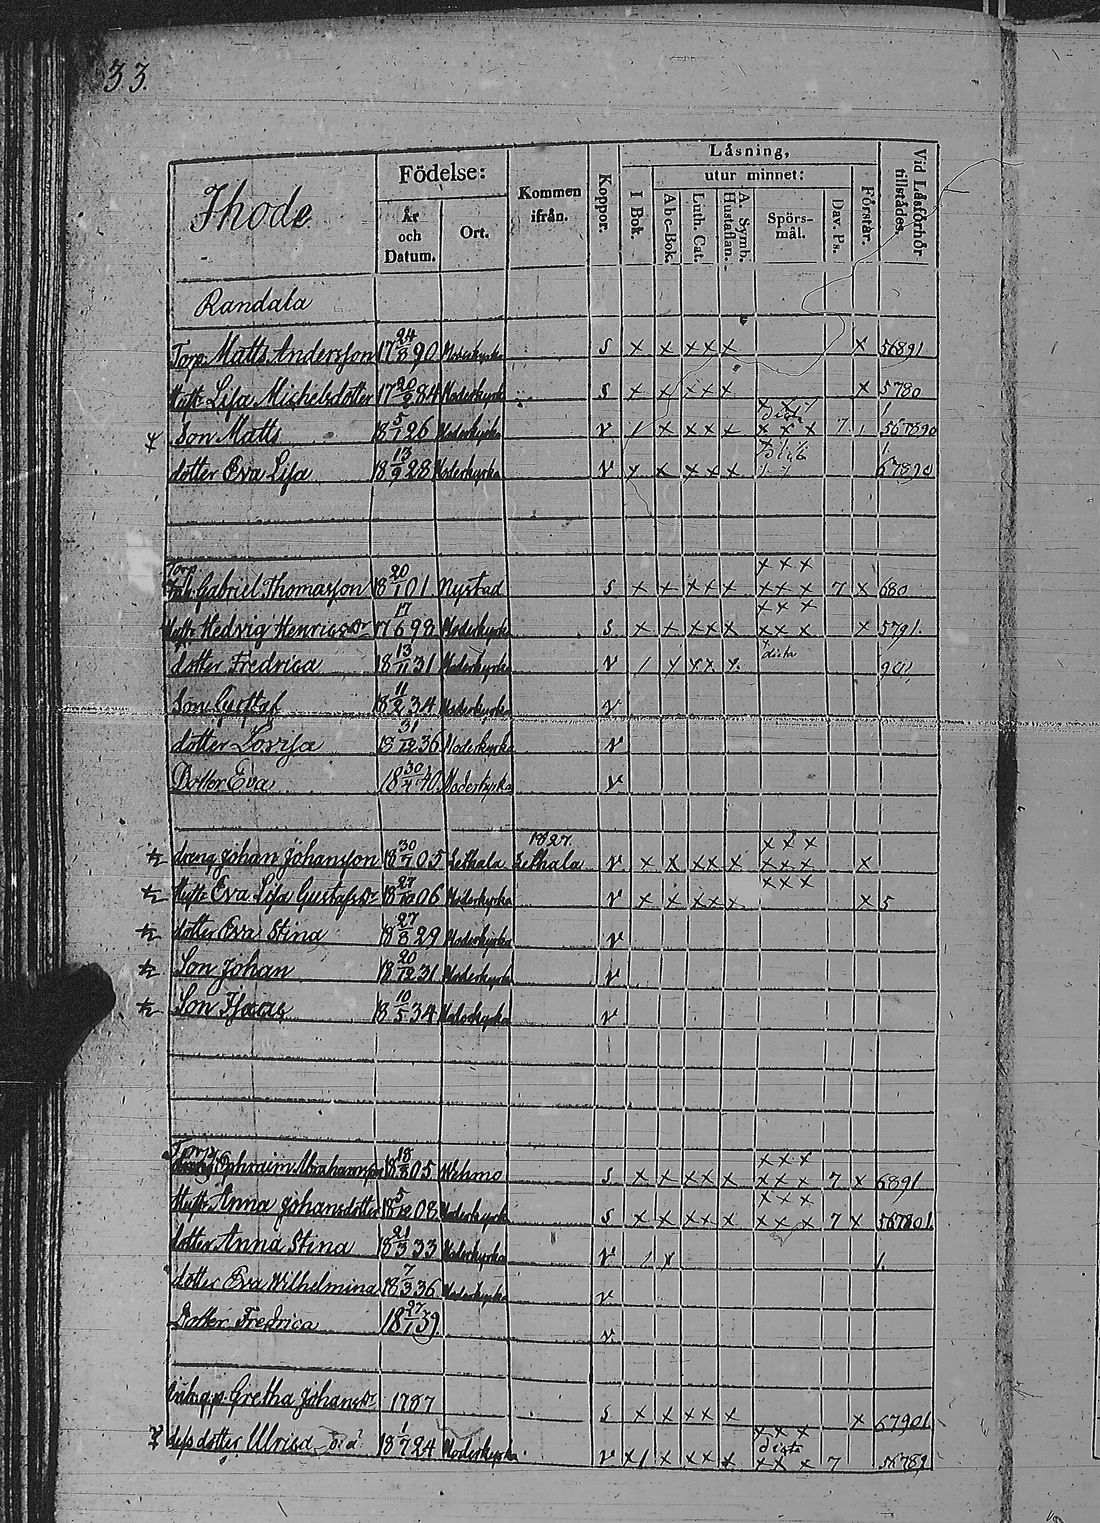 33.
Ihode
Födelse:
År och Datum.
Ort.
Kommen ifrån.
Koppor.
Läsning,
I Bok.
utur minnet:
Abc-Bok.
Luth. Cat.
A. Symb. Hustaflan.
Spörs-mål.
Dav. Ps.
Förstår.
Vid Läsförhör tillstädes.
Randala
Torp. Matts Andersson 17 24/8 90 Moderkyrka S x x x x x x 56891
Hustr. Lisa Michelsdotter 17 20/9 84 Moderkyrk S x x x x x x 5780
Son Matts 18 5/1 26 Moderkyrka V 1 x x x x x x x 7 1 567890
dotter Eva Lisa 18 13/9 28 Moderkyrka V x x x x x 67890
Torp
Gabriel Thomasson 18 20/1 01 Nystad S x x x x x x x x 7 x 680
Hustr Hedvig Henricsdr 17 17/6 98 Moderkyrk S x x x x x x x x x 5791.
dotter Fredrica 18 13/11 31 Moderkyrka V / x x x x dista 901,
Son Gustaf 18 11/2 34 Moderkyrka V
dotter Lovisa 18 31/12 36 Moderkyrka V
Dotter Eva 18 30/4 40 Moderkyrka V
1827.
dräng Johan Johansson 18 30/7 05 Lethala Lethala V x x x x x x x x x
Hustr Eva Lisa Gustafsdr 18 27/10 06 Moderkyrka V x x x x x x 5
dotter Eva Stina 18 27/8 29 Moderkyrka V
Son Johan 18 20/12 31 Moderkyrka V
Son Isaac 18 10/5 34 Moderkyrka V
Torp.
Ephraim Abrahamson 18 18/8 05 Wehmo S x x x x x x x x 7 x 6891
Hustr Anna Johansdotter 18 5/12 08 Moderkyrk S x x x x x x x x 7 x 567801.
dotter Anna Stina 18 21/3 33 Moderkyrka V / x 1.
dotter Eva Wilhelmina 18 7/3 36 Moderkyrka V
Dotter Fredrica 18 27/1 39 V
Gretha Johansdr 1787 S x x x x x x 67901
dess dotter Ulrica 18 1/7 24 Moderkyrka V x 1 x x x x dista x x x 7 56789